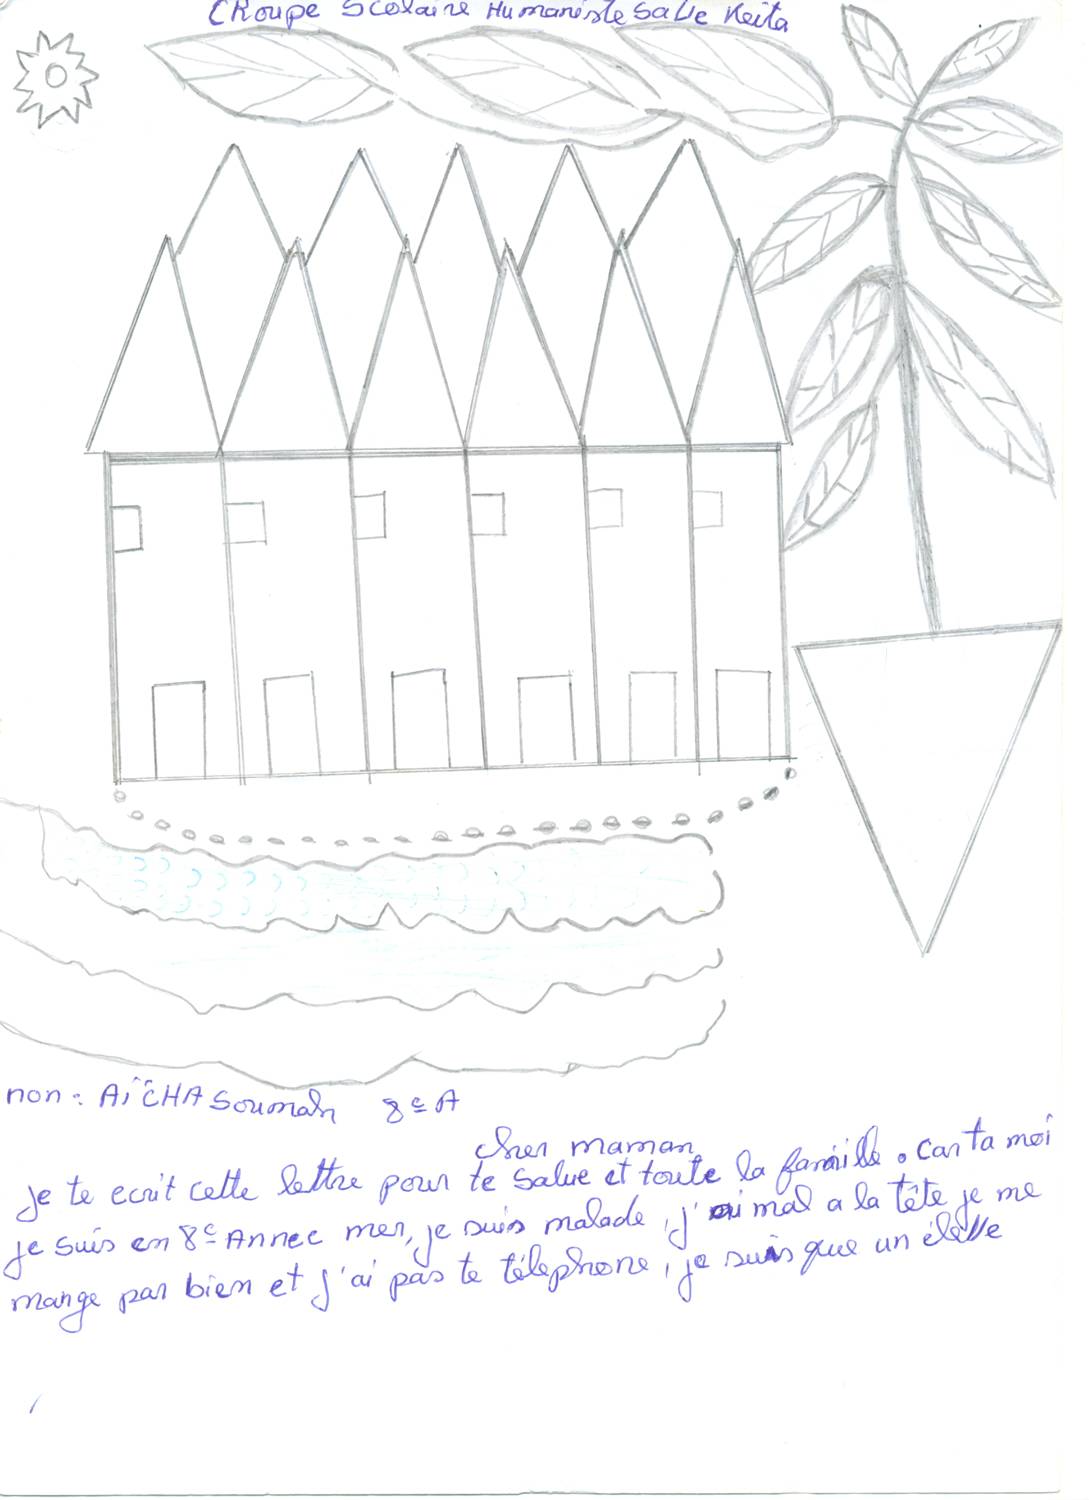 CRoupe Scolaire Humaniste Salle Keita
non : AÏCHA Soumah 8e A
cher maman
je te ecrit cette lettre pour te salue et toute la famille. Can ta moi
je suis en 8e Annee mer, je suis malade, j'ai mal a la tête je me
mange pas bien et j'ai pas te télephone, je suis que un élève